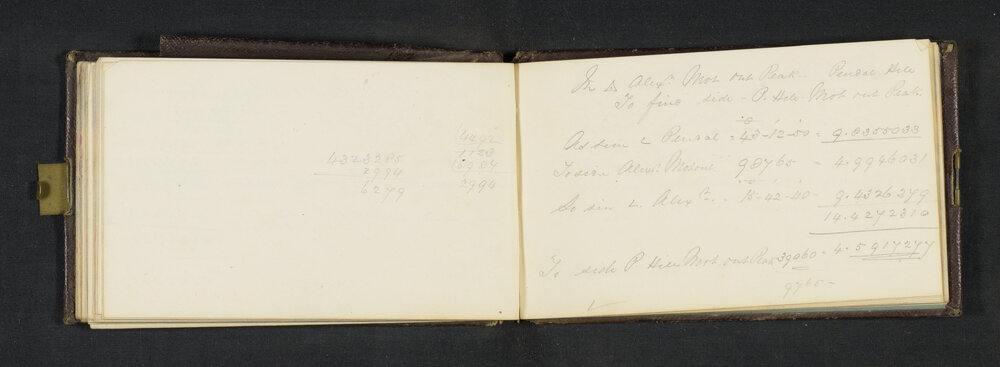 4323285
2994
6279
4292
2994
In △ Alexr. Mot out Peak. Penzal Hile
To find side - P. Hile Mot out Peak
As sin ∠ Penzal = 43-12-50 = 9.8355033
To side Alexr. 98765 = 4.9946031
So sin ∠. Alexr. = 15-42-40 - 9.4326279
14.4272310
To side P Hile Mot out Peak 39060 = 4.5917277
9765 -